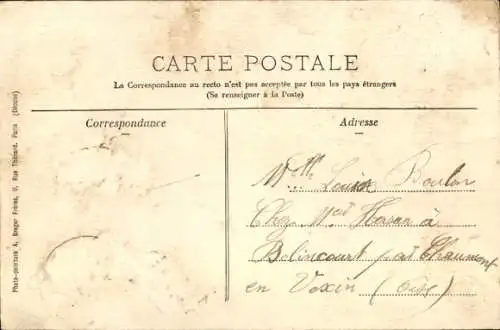 CARTE POSTALE
La Correspondance au recto n'est pas acceptée par tous les pays étrangers
(Se renseigner à la Poste)
Correspondance
Adresse
Mlle Louise Boulon
Chez Med à
Belincourt par Chaumont
en Vexin (Oise)
Photo-peinture A. Breger Frères, 9, Rue Thénard, Paris (Déposé)